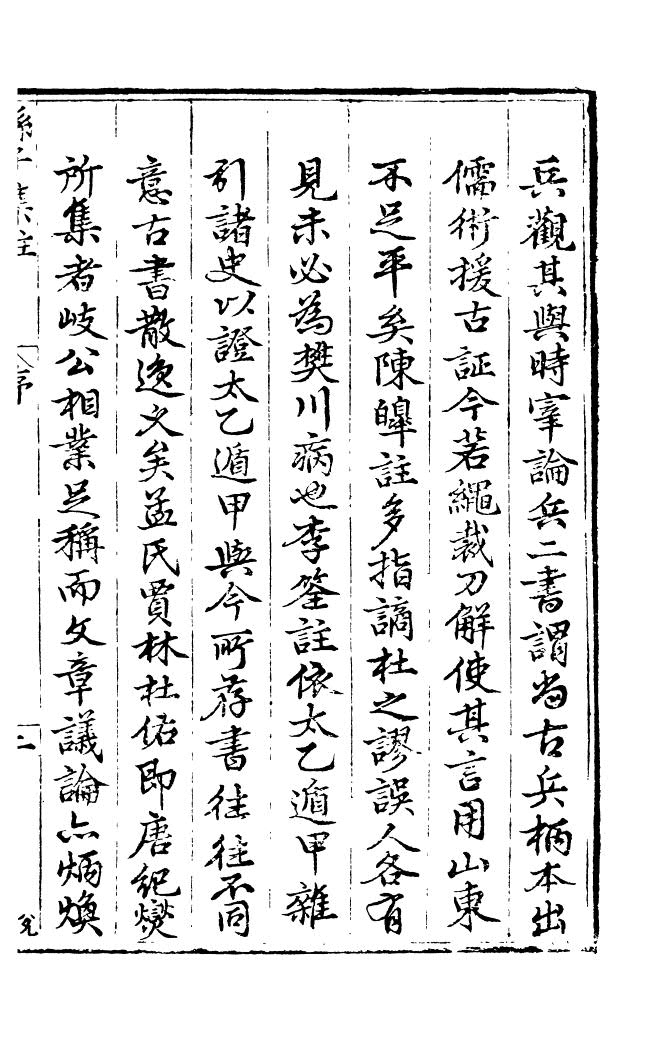 兵觀其與時宰論兵二書謂尚古兵柄本出
儒術援古証今若繩裁刀解使其言用山東
不足平矣陳皥註多指謫杜之謬誤人各有
見未必為樊川病也李筌註依太乙遁甲雜
引諸史以證太乙遁甲與今所存書徃徃不同
意古書散逸久矣孟氏賈林杜佑即唐紀燮
所集者岐公相業足稱而文章議論亦炳煥
孫子集註
序
二